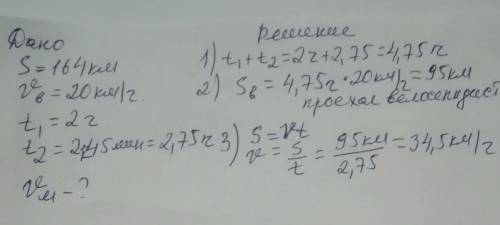 Дано
S = 164 км
Vв = 20 км/г.
t₁ = 2г
t₂ = 2г 45 мин = 2,75г
Vм - ?
Решение
1) t₁ + t₂ = 2г + 2,75 = 4,75г
2) Sв = 4,75г * 20 км/г = 95 км
проехал велосепидист
3) S = Vt
V = S/t = 95 км/2,75 = 34,5 км/г